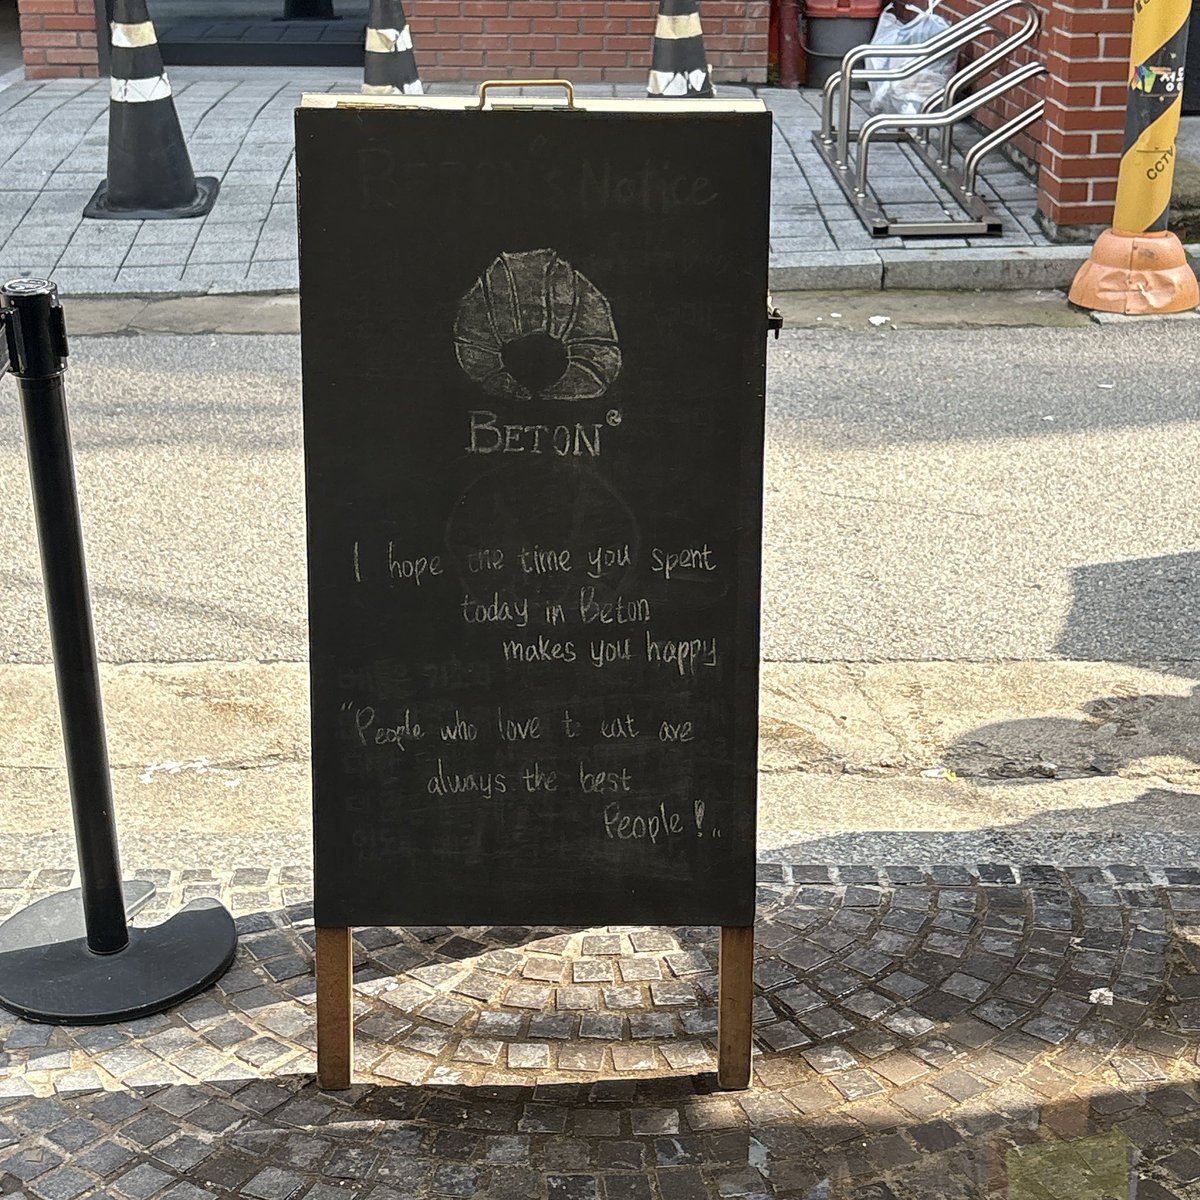 BETON's Notice
BETON®
I hope the time you spent
today in Beton
makes you happy
"People who love t eat are
always the best
People!„
CCTV